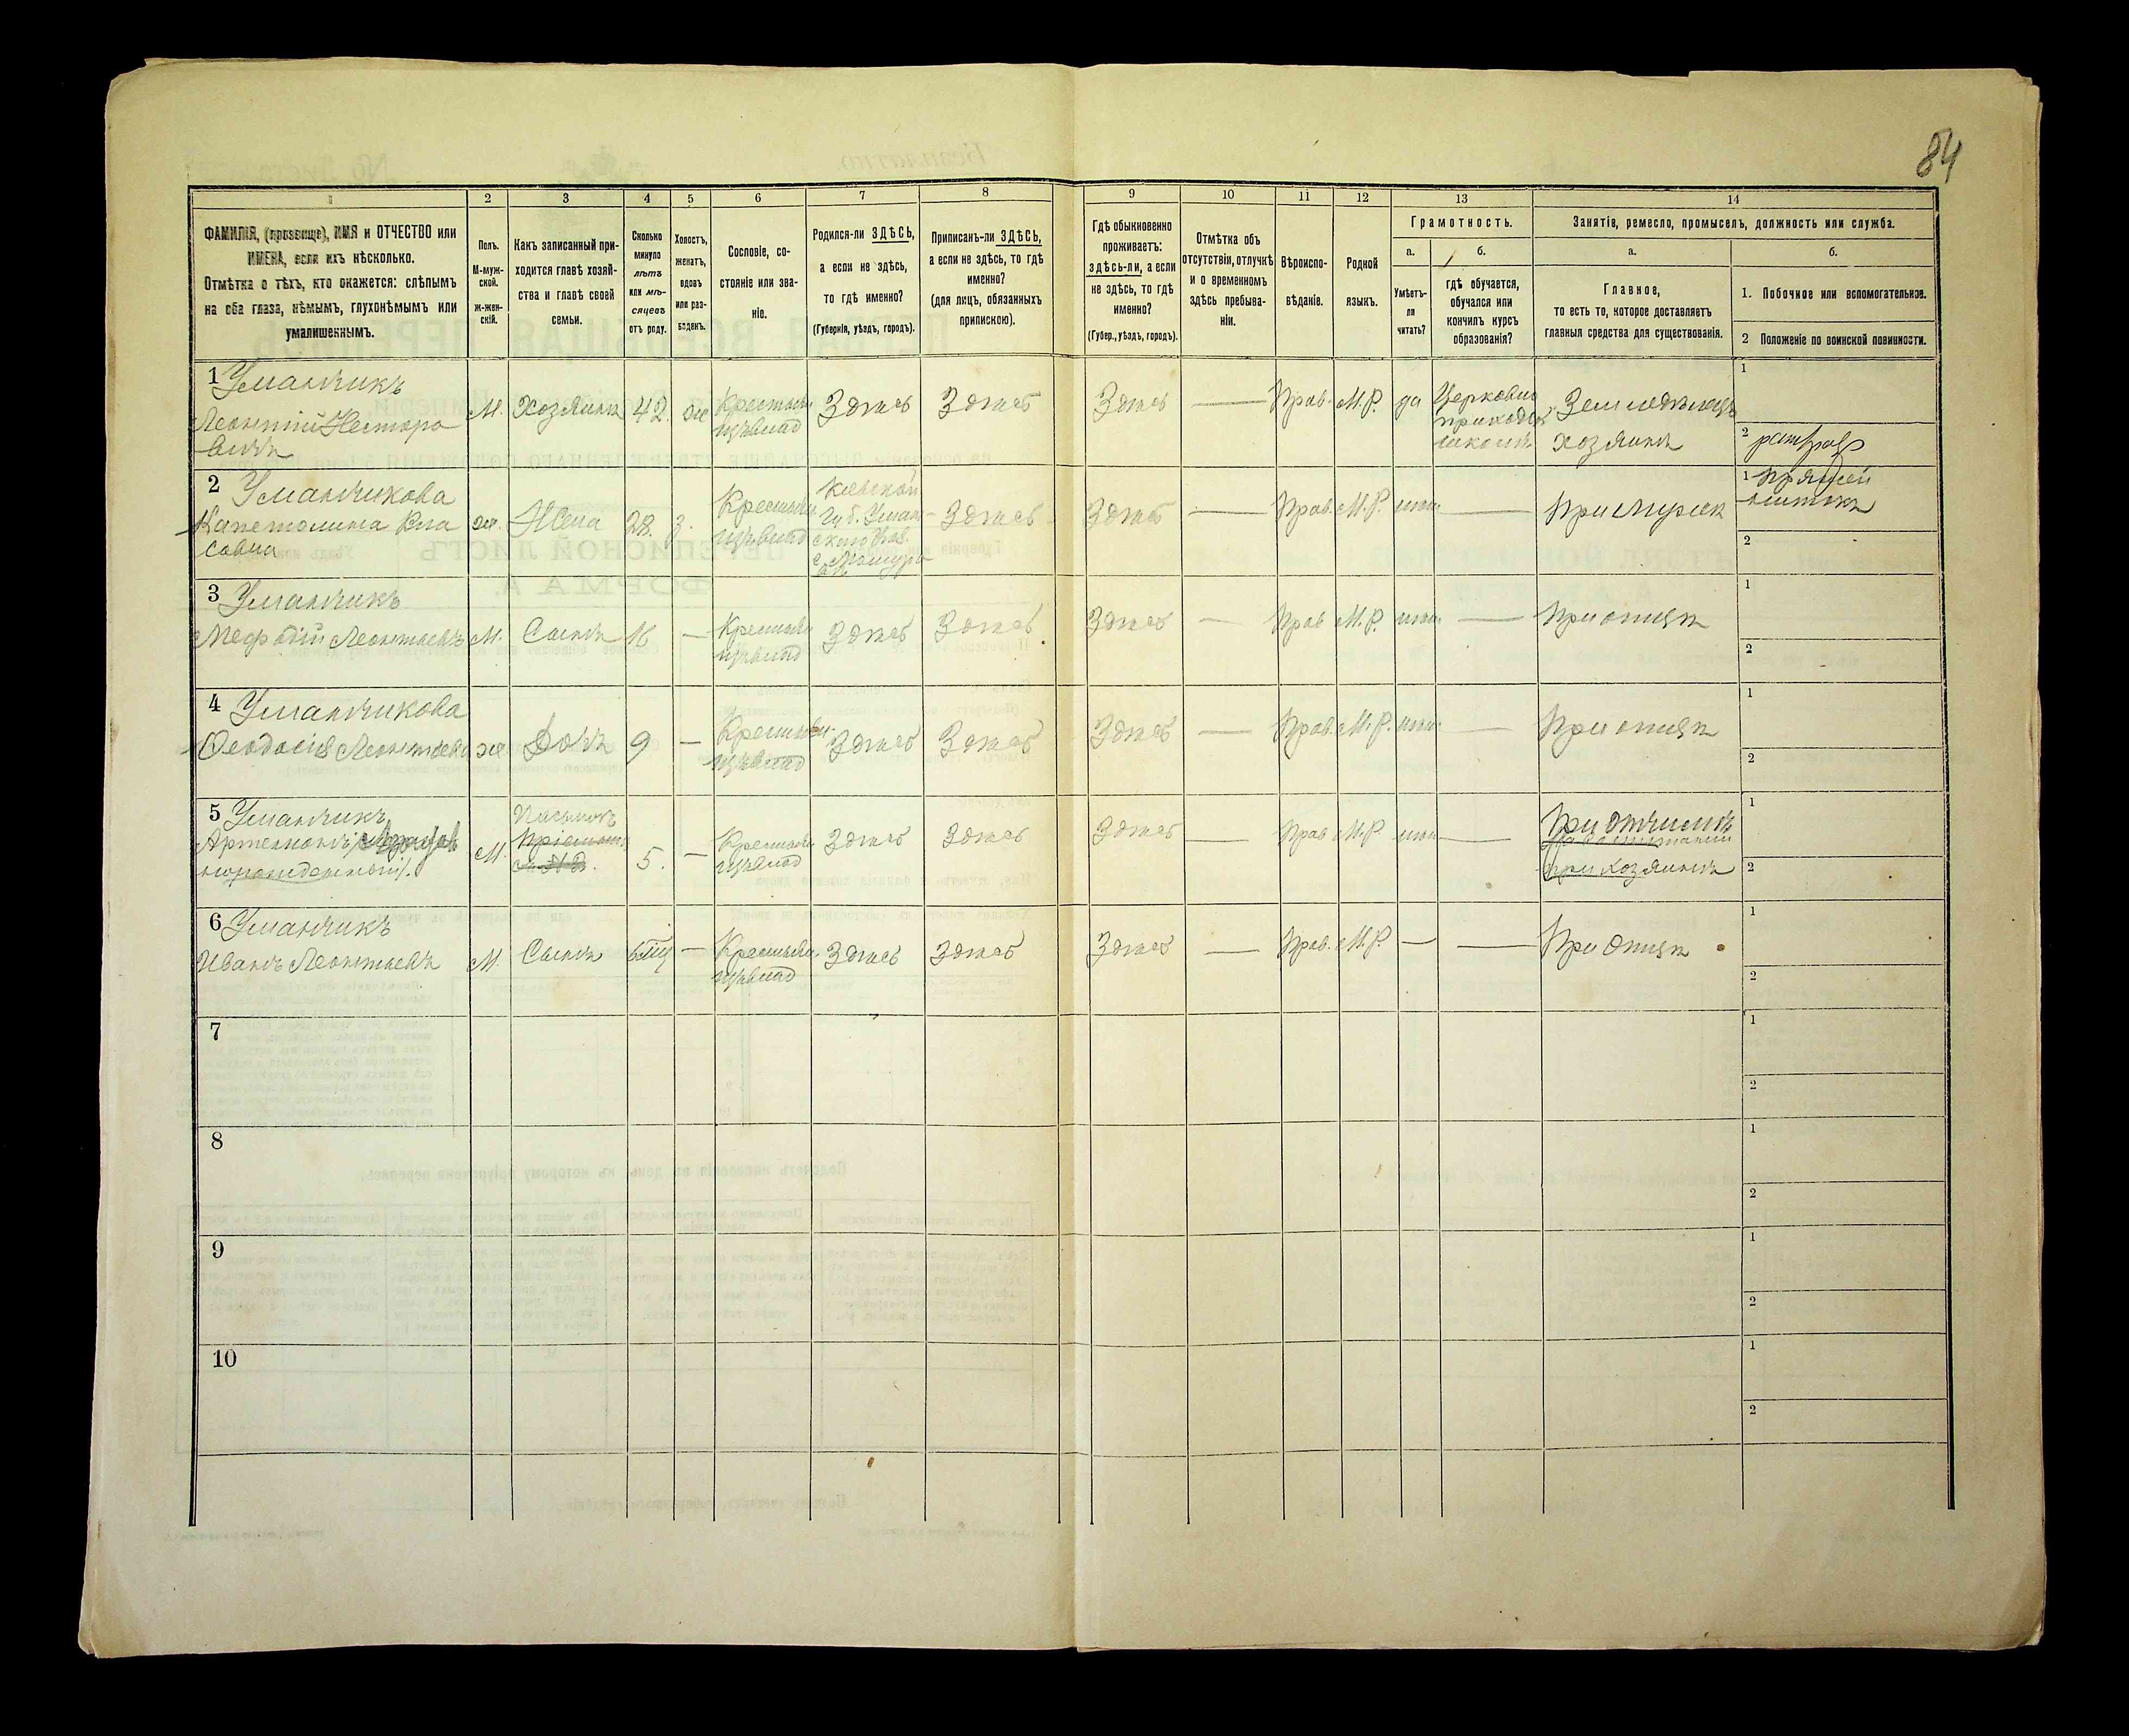 84
1 2 3 4 5 6 7 8 9 10 11 12 13 14
ФАМИЛІЯ, (прозвище), ИМЯ и ОТЧЕСТВО или
ИМЕНА, если ихъ нѣсколько.
Отмѣтка о тѣхъ, кто окажется: слѣпымъ
на оба глаза, нѣмымъ, глухонѣмымъ или
умалишеннымъ.
Полъ.
М-муж-
ской.
ж-жен-
скій.
Какъ записанный при-
ходится главѣ хозяй-
ства и главѣ своей
семьи.
Сколько
минуло
лѣтъ
или мѣ-
сяцевъ
отъ роду.
Холостъ,
женатъ,
вдовъ
или раз-
веденъ.
Сословіе, со-
стояніе или зва-
ніе.
Родился-ли ЗДѢСЬ,
а если не здѣсь,
то гдѣ именно?
(Губернія, уѣздъ, городъ).
Приписанъ-ли ЗДѢСЬ,
а если не здѣсь, то гдѣ
именно?
(для лицъ, обязанныхъ
припискою).
Гдѣ обыкновенно
проживаетъ:
здѣсь-ли, а если
не здѣсь, то гдѣ
именно?
(Губер., уѣздъ, городъ).
Отмѣтка объ
отсутствіи, отлучкѣ
и о временномъ
здѣсь пребыва-
ніи.
Вѣроиспо-
вѣданіе.
Родной
языкъ.
Грамотность.
а.
Умѣетъ-
ли
читать?
б.
гдѣ обучается,
обучался или
кончилъ курсъ
образованія?
Занятіе, ремесло, промыселъ, должность или служба.
а.
Главное,
то есть то, которое доставляетъ
главныя средства для существованія.
б.
1. Побочное или вспомогательное.
2 Положеніе по воинской повинности.
1 Уманчикъ
Леонтій Несторо
вичъ
М. Хозяинъ 42. ж
Крестьян.
изъ влад
Здѣсь Здѣсь Здѣсь — Прав. М.Р. да
Церковно
приходск.
школѣ
Земледѣлецъ
хозяинъ
1
2
2 Уманчикова
Капетолина Вла
совна
ж. Жена 28. з.
Крестьян.
изъ влад
Кіевской
Губ. Уман-
скаго
Здѣсь Здѣсь — Прав. М.Р. —
При мужѣ
1 Прядей
нитокъ
2
3 Уманчикъ
Мефодій Леонтьевъ М. Сынъ 16 —
Крестьян.
изъ влад
Здѣсь Здѣсь Здѣсь — Прав М.Р. — При отцѣ
1
2
4 Уманчикова
Ѳеодосія Леонтьева ж Дочь 9 —
Крестьян.
изъ влад
Здѣсь Здѣсь Здѣсь — Прав. М.Р. — При отцѣ
1
2
5 Уманчикъ
Артемонъ
М.
Пасынокъ
Пріемышъ
5. —
Крестьян.
изъ влад
Здѣсь Здѣсь Здѣсь — Прав М.Р —
При отчимѣ
при хозяинѣ
1
2
6 Уманчикъ
Иванъ Леонтьевъ М. Сынъ —
Крестьян.
изъ влад
Здѣсь Здѣсь Здѣсь — Прав. М.Р. — — При отцѣ
1
2
7
1
2
8
1
2
9
1
2
10
1
2